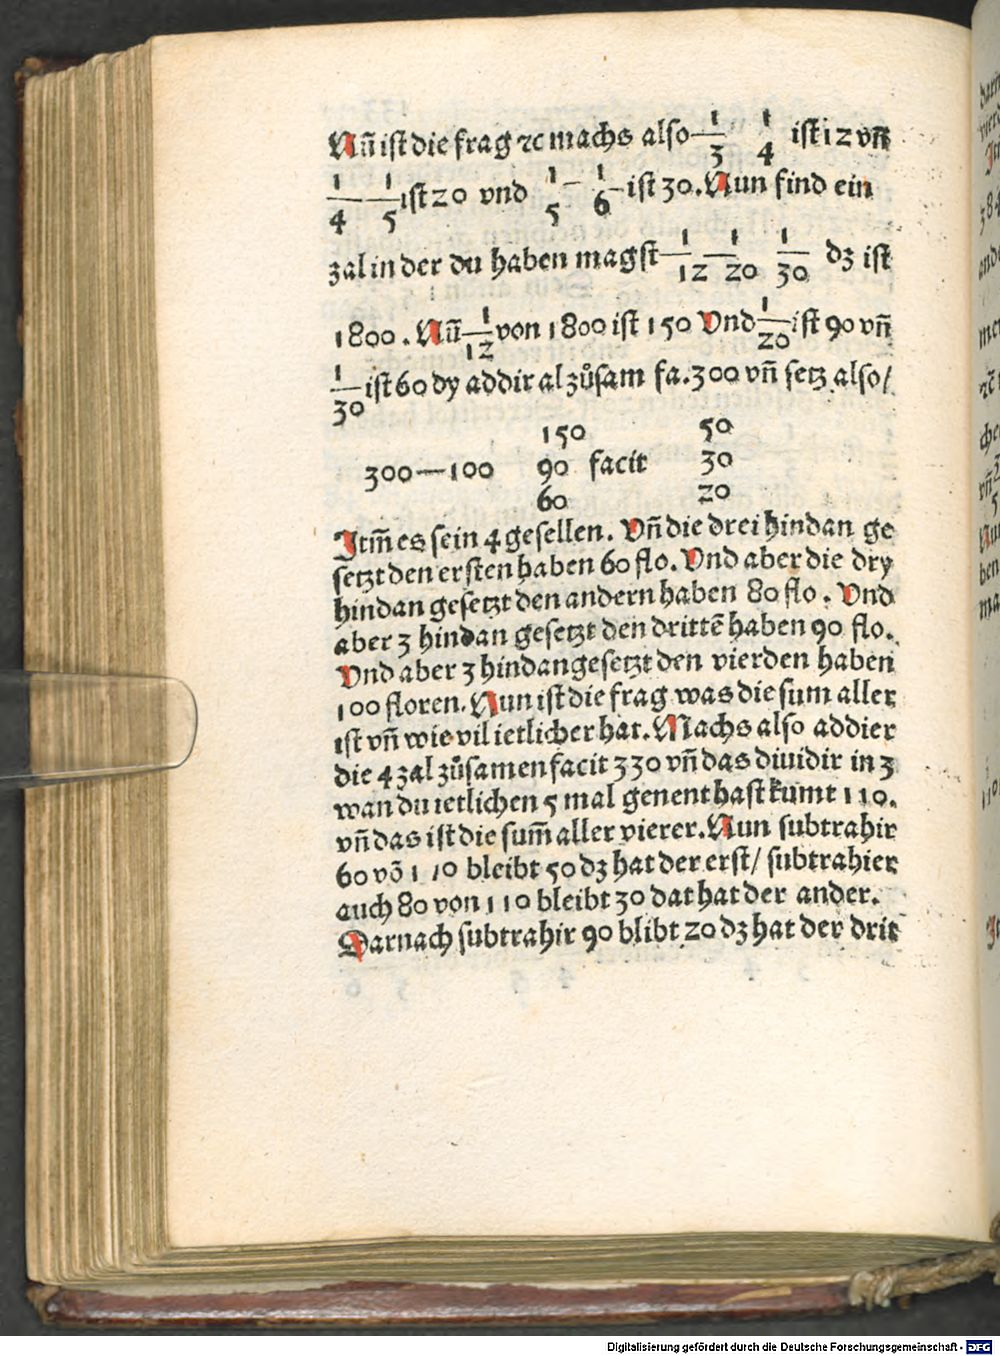 Nun̄ ist die frag ⁊c machs also 1/3 1/4 ist 12 vn̄
1/4 1/5 ist 20 vnd 1/5 1/6 ist 30. Nun find ein
zal in der du haben magst 1/12 1/20 1/30 dz ist
1800. Nūn 1/12 von 1800 ist 150 Vnd 1/20 ist 90 vn̄
1/30 ist 60 dy addir al zůsam fa. 300 vn̄ setz also/
150 50
300—100 90 facit 30
60 20
Itm̄ es sein 4 gesellen. Vn̄ die drei hindan ge
setzt den ersten haben 60 flo. Vnd aber die dry
hindan gesetzt den andern haben 80 flo. Vnd
aber 3 hindan gesetzt den drittē haben 90 flo.
Vnd aber 3 hindangesetzt den vierden haben
100 floren. Nun ist die frag was die sum aller
ist vn̄ wie vil ietlicher hat. Machs also addier
die 4 zal zůsamen facit 330 vn̄ das diuidir in 3
wan du ietlichen 5 mal genent hast kumt 110.
vn̄ das ist die sum̄ aller vierer. Nun subtrahir
60 vō 110 bleibt 50 dz hat der erst/ subtrahier
auch 80 von 110 bleibt 30 dat hat der ander.
Darnach subtrahir 90 blibt 20 dz hat der drit
Digitalisierung gefördert durch die Deutsche Forschungsgemeinschaft - DFG